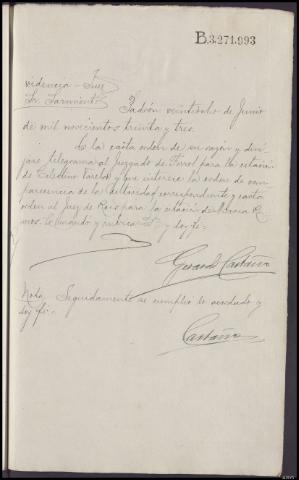 B.3.271.993
videncia - Juez
Sr. Sarmiento
Padrón veintidós de Junio
de mil novecientos treinta y tres.
la carta orden de su razón y
telegrama al Juzgado de Ferrol para la citación
de Celestino Varela y que interese la orden de com-
parecencia de la autoridad correspondiente y carta
orden al Juez de para la citación de
mos. Lo mandó y rubrica S.Sª y doy fé.-
Gerardo Castaño
Nota. Seguidamente se cumplió lo acordado y
doy fé.-
Castaño